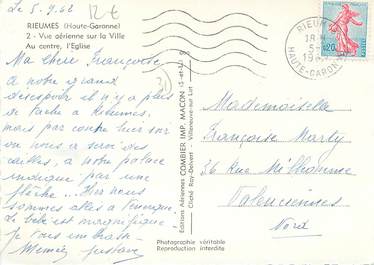 Le 5.9.62
12€
RIEUMES (Haute-Garonne)
2 - Vue aérienne sur la Ville
Au centre, l'Eglise
Ma chère Françoise
à notre grand
désespoir il n'y a pas
de carte à Rieumes,
mais par contre hier soir
on nous a servi des
cailles, à notre palace
indiqué par une
flèche. Hier nous
sommes allés à
Le bébé est magnifique
je vous embrasse
Mémée Gustave
Editions Aériennes COMBIER IMP. MACON (S.-et-L.)
Cliché Ray-Delvert - Villeneuve-sur-Lot
Photographie véritable
Reproduction interdite
RIEUMES
HAUTE-GARONNE
0,20
Mademoiselle
Françoise Marly
36 Rue
Valenciennes
Nord